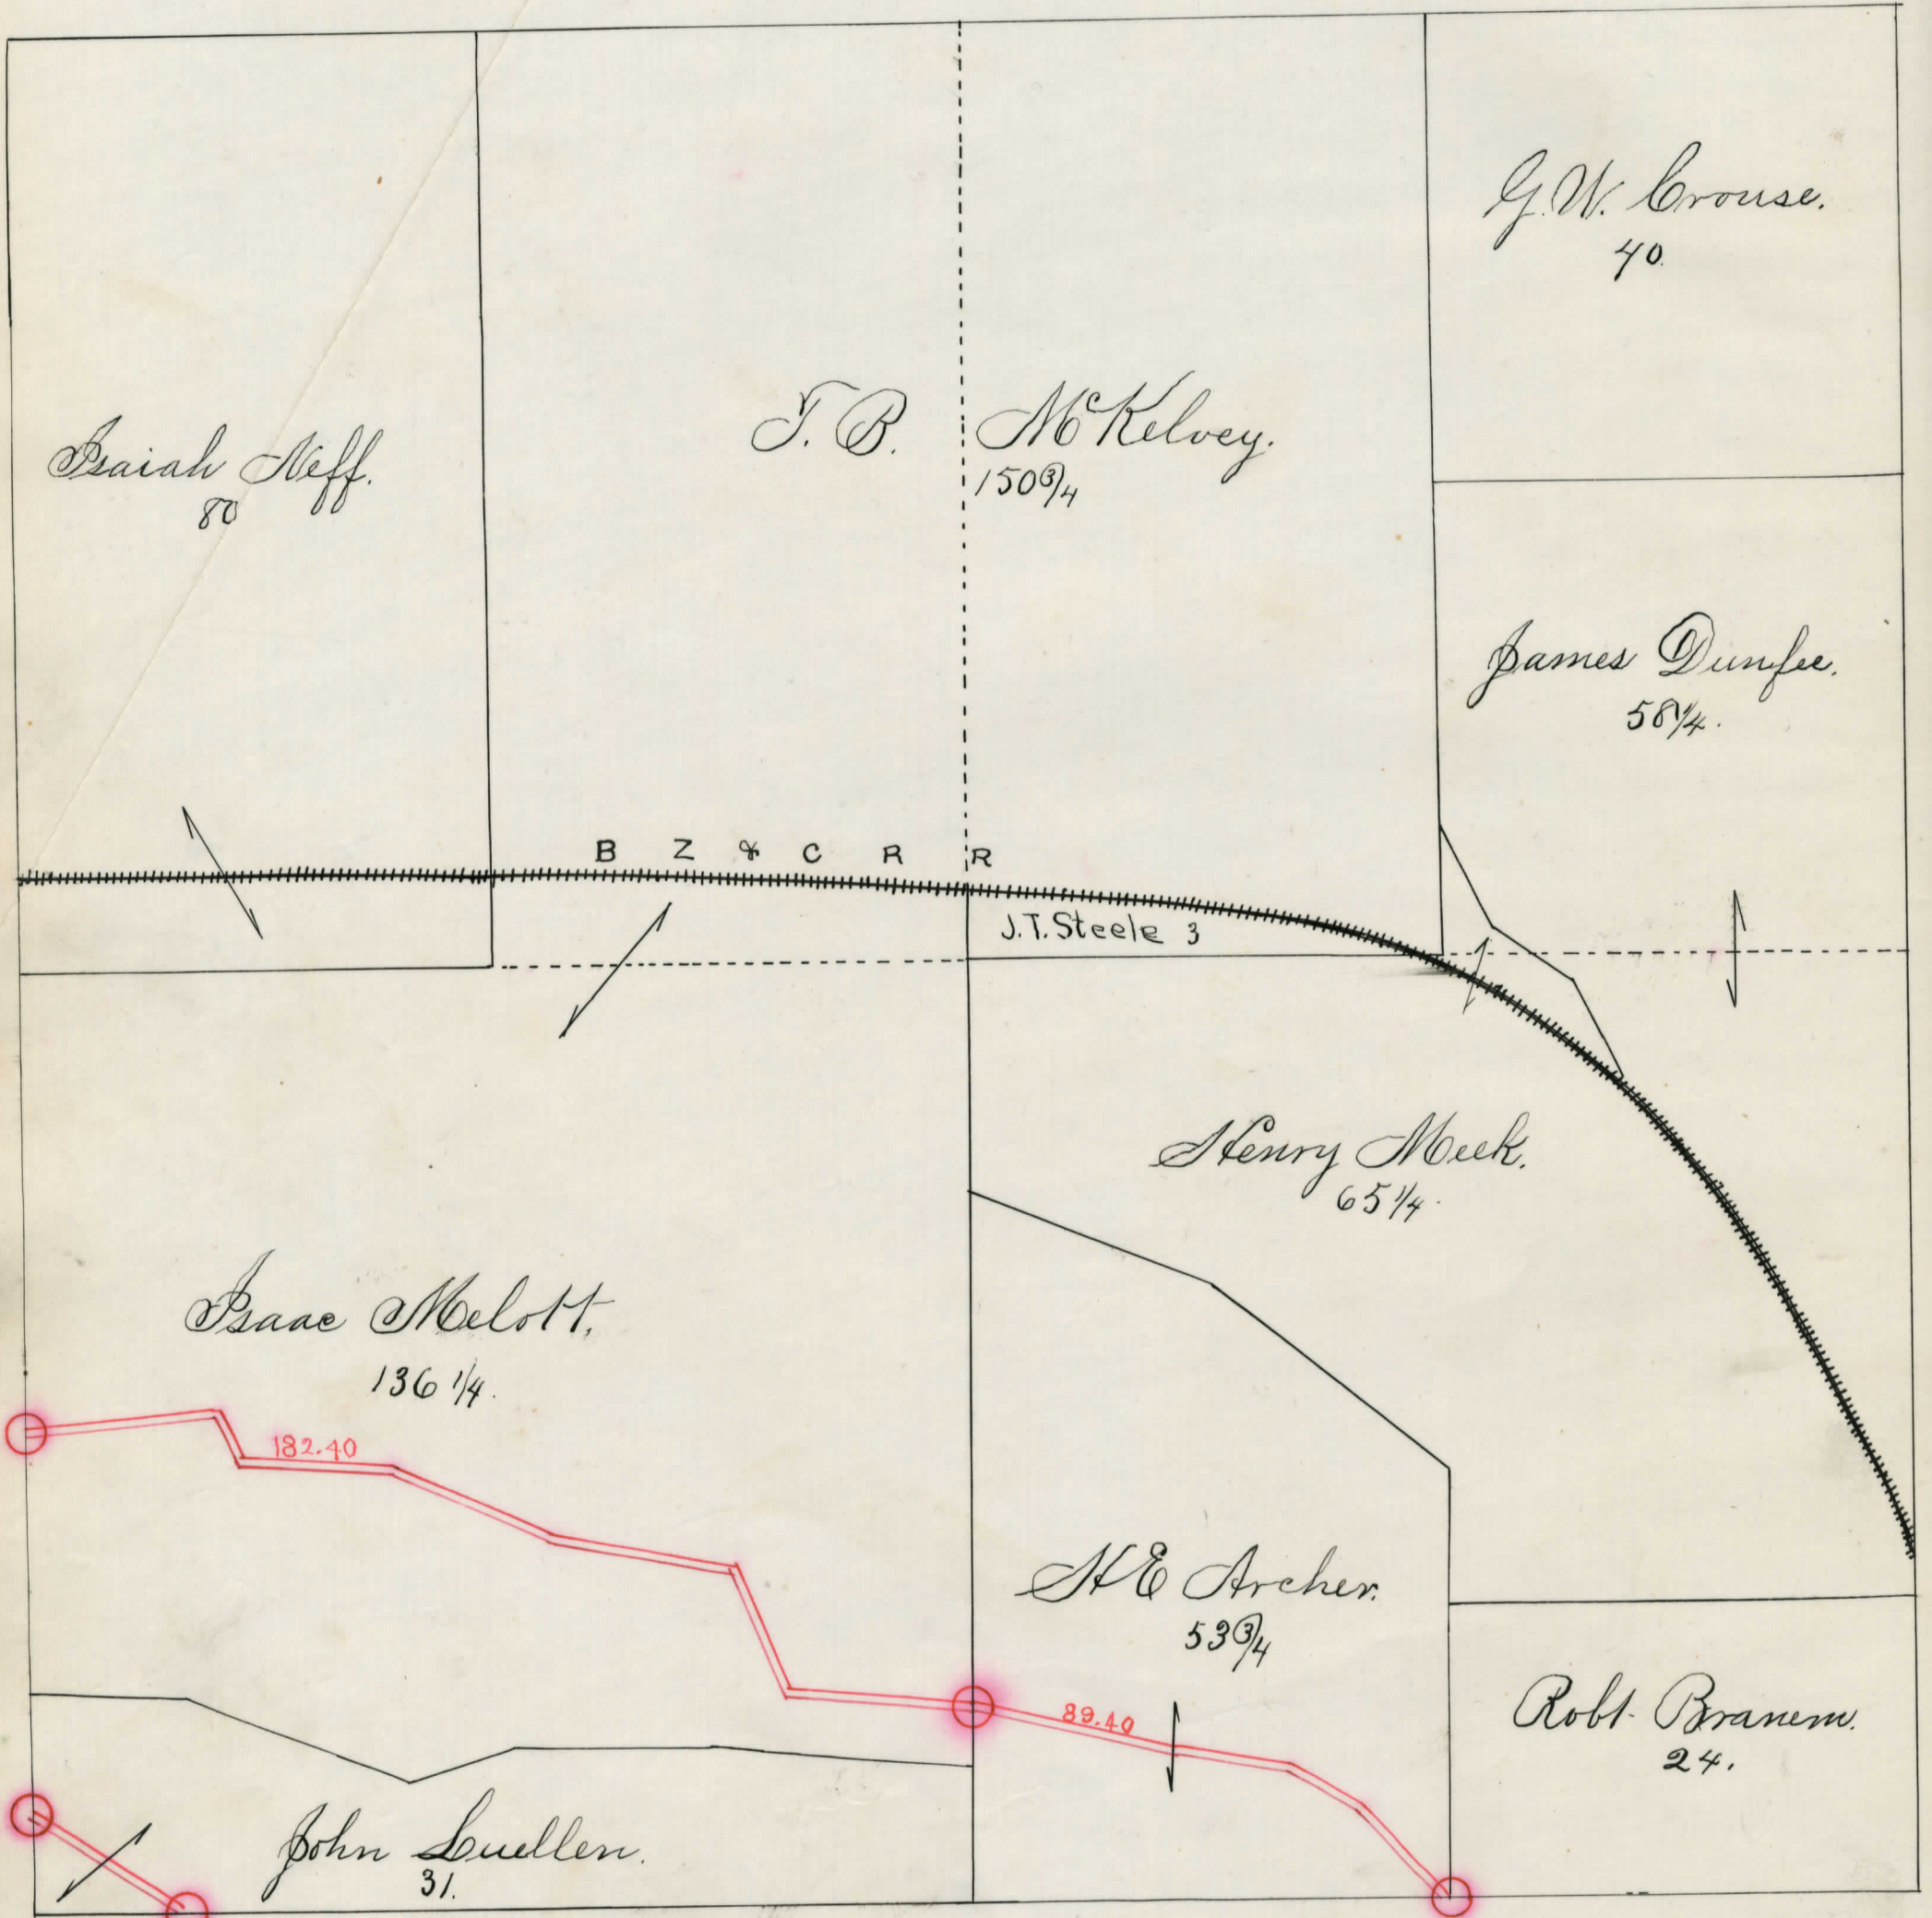 G.W. Crouse.
40.
T. B. McKelvey.
150 3/4
Isaiah Neff.
80
James Dunfee.
58 1/4.
B Z & C R R
J.T. Steele 3
Henry Meek.
65 1/4.
Isaac Melott.
136 1/4.
182.40
H E Archer.
53 3/4
89.40
Robt. Branem.
24.
John Luellen.
31.